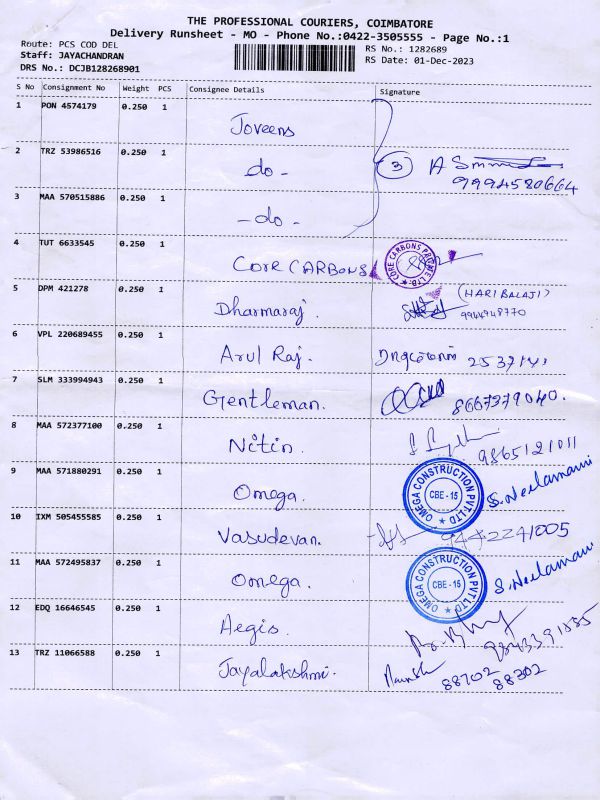 THE PROFESSIONAL COURIERS, COIMBATORE
Delivery Runsheet - MO - Phone No.:0422-3505555 - Page No.:1
Route: PCS COD DEL
Staff: JAYACHANDRAN
DRS No.: DCJB128268901
RS No.: 1282689
RS Date: 01-Dec-2023
S No Consignment No Weight PCS Consignee Details Signature
1 PON 4574179 0.250 1 Joveens
2 TRZ 53986516 0.250 1 -do- 3 9994580664
3 MAA 570515886 0.250 1 -do-
4 TUT 6633545 0.250 1 CORE CARBONS
5 DPM 421278 0.250 1 Dharmaraj. (HARI BALAJI)
9944948770
6 VPL 220689455 0.250 1 Arul Raj.
7 SLM 333994943 0.250 1 Gentleman. 8667379040.
8 MAA 572377100 0.250 1 Nitin. 9865121011
9 MAA 571880291 0.250 1 Omega. OMEGA CONSTRUCTION PVT LTD CBE - 15 S. Neelamani
10 IXM 505455585 0.250 1 Vasudevan. 9442241005
11 MAA 572495837 0.250 1 Omega. OMEGA CONSTRUCTION PVT LTD CBE - 15 S. Neelamani
12 EDQ 16646545 0.250 1 Aegis.
13 TRZ 11066588 0.250 1 Jayalakshmi. 88702
88302